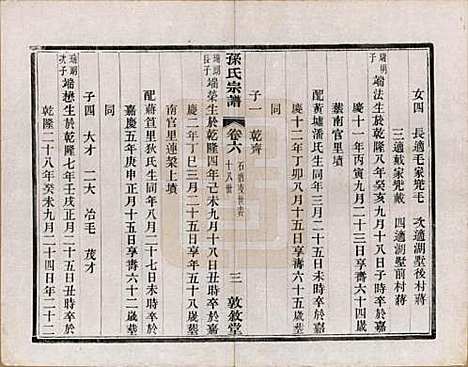 女四 長適毛家兠毛 次適湖墅後村蔣
三適戴家兠戴 四適湖墅前村蔣
瑞明子 端法生於乾隆八年癸亥九月十八日子時卒於
嘉慶十一年丙寅九月二十三日享壽六十四歲
葬南官里墳
配黃墟潘氏生同年十一月二十五日卯時卒於嘉
慶十二年丁卯八月十三日享壽六十五歲
同
子一 乾齊
孫氏宗譜 卷六 石橋凌世表 十八世 三 敦敘堂
瑞朝長子 端榮生於乾隆四年己未九月十八日午時卒於嘉
慶二年丁巳三月二十五日享年五十八歲葬
南官里蓮槳上墳
配蔣笪里狄氏生同年八月二十七日午時卒於
嘉慶五年庚申正月十五日享壽六十二歲葬
同
子四 大才 二大 冶毛 茂才
瑞朝次子 端懋生於乾隆七年壬戌正月二十五日丑時卒於
乾隆二十八年癸未九月二十四日年二十二